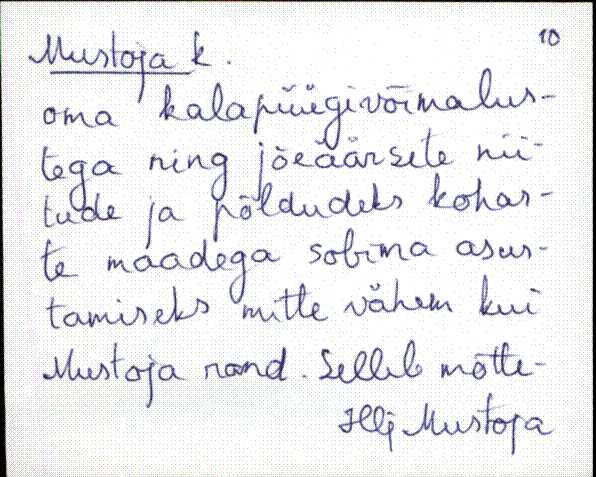 10
Mustoja k.
oma kalapüügivõimalus-
tega ning jõeäärsete nii-
tude ja põldudeks kohas-
te maadega sobima asus-
tamiseks mitte vähem kui
Mustoja rand. Sellele mõtte-
Mustoja